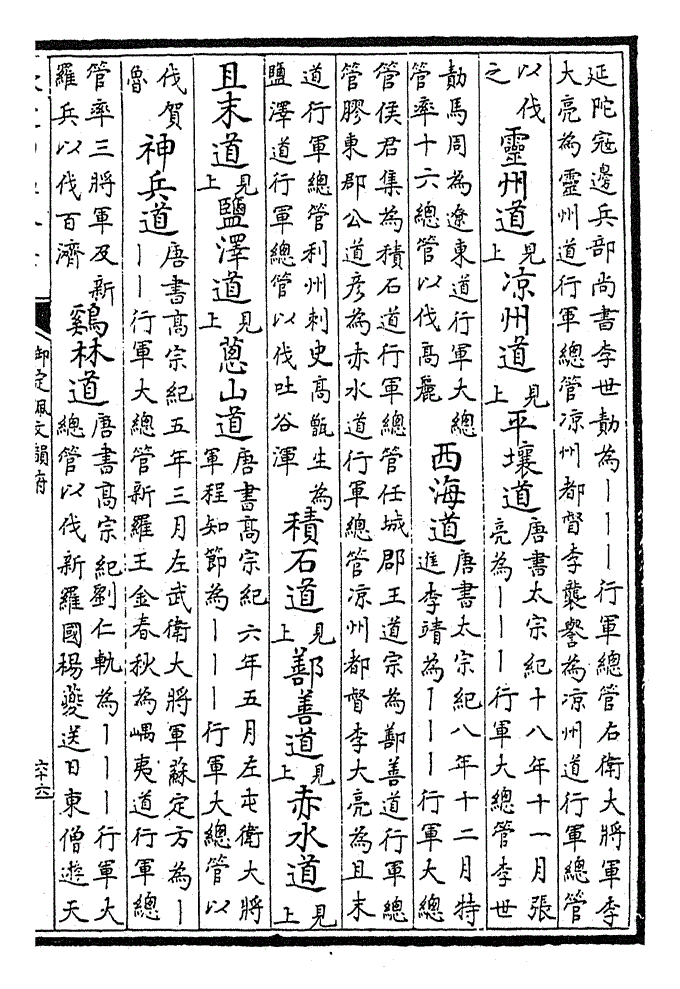 延陀寇邊兵部尚書李世勣為丨丨丨行軍總管右衛大將軍李
大亮為靈州道行軍總管凉州都督李襲譽為凉州道行軍總管
以伐之 靈州道 見上 凉州道 見上 平壤道 唐書太宗紀十八年十一月張
亮為丨丨丨行軍大總管李世
勣馬周為遼東道行軍大總
管率十六總管以伐高麗 西海道 唐書太宗紀八年十二月特
進李靖為丨丨丨行軍大總
管侯君集為積石道行軍總管任城郡王道宗為鄯善道行軍總
管膠東郡公道彦為赤水道行軍總管凉州都督李大亮為且末
道行軍總管利州刺史高甑生為
鹽澤道行軍總管以伐吐谷渾 積石道 見上 鄯善道 見上 赤水道 見上
且末道 見上 鹽澤道 見上 蔥山道 唐書高宗紀六年五月左屯衛大將
軍程知節為丨丨丨行軍大總管以
伐賀魯 神兵道 唐書高宗紀五年三月左武衛大將軍蘇定方為丨
丨丨行軍大總管新羅王金春秋為嵎夷道行軍總
管率三將軍及新
羅兵以伐百濟 鷄林道 唐書高宗紀劉仁軌為丨丨丨行軍大
總管以伐新羅國楊夔送日東僧遊天
御定佩文韻府
六十六